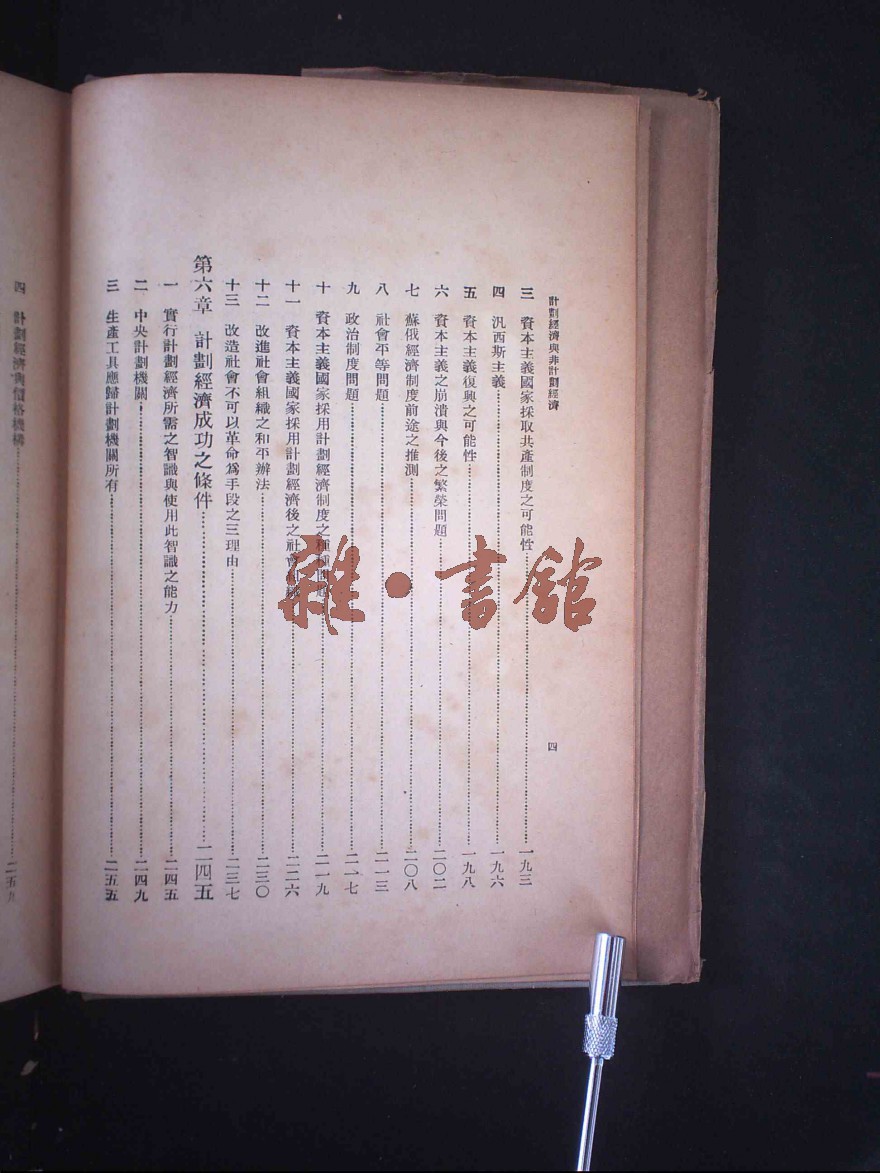 計劃經濟與非計劃經濟
四
三 資本主義國家採取共產制度之可能性……一九三
四 汎西斯主義……一九六
五 資本主義復興之可能性……一九八
六 資本主義之崩潰與今後之繁榮問題……二〇二
七 蘇俄經濟制度前途之推測……二〇八
八 社會平等問題……二一三
九 政治制度問題……二一七
十 資本主義國家採用計劃經濟制度之種種問題……二一九
十一 資本主義國家採用計劃經濟後之社會組織……二二六
十二 改進社會組織之和平辦法……二三〇
十三 改造社會不可以革命爲手段之三理由……二三七
第六章 計劃經濟成功之條件……二四五
一 實行計劃經濟所需之智識與使用此智識之能力……二四五
二 中央計劃機關……二四九
三 生產工具應歸計劃機關所有……二五五
四 計劃經濟與價格機構……二五九
雜·書館